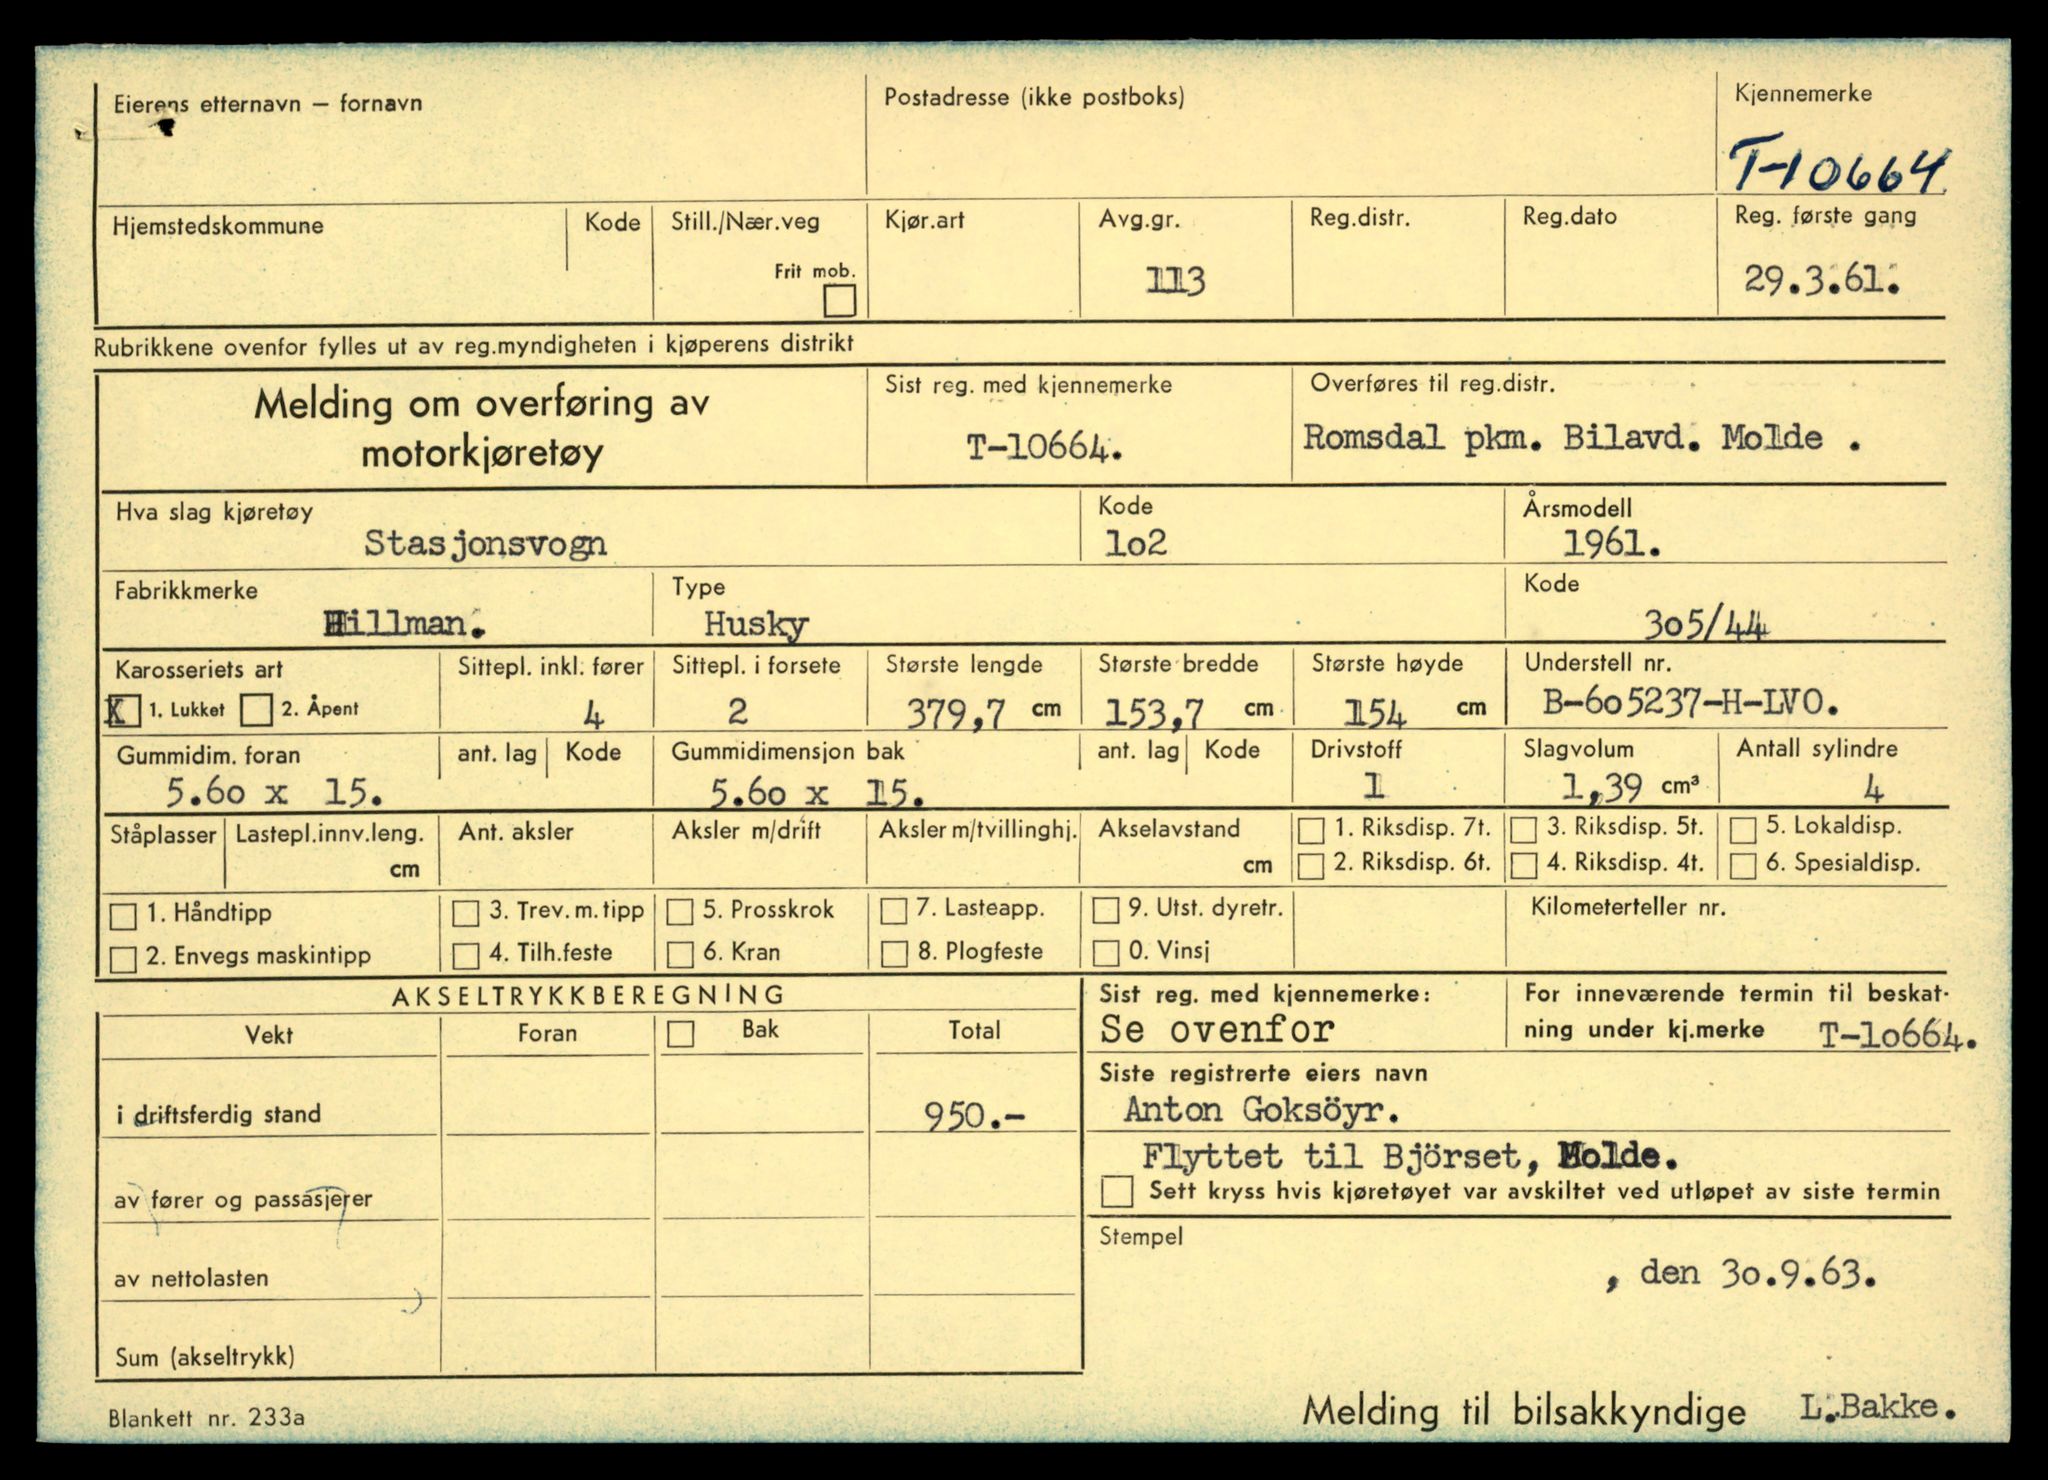 Eierens etternavn – fornavn
Postadresse (ikke postboks)
Kjennemerke
T-10664
Hjemstedskommune
Kode
Still./Nær.veg
Frit mob.
Kjør.art
Avg.gr.
113
Reg.distr.
Reg.dato
Reg. første gang
29.3.61.
Rubrikkene ovenfor fylles ut av reg.myndigheten i kjøperens distrikt
Melding om overføring av
motorkjøretøy
Sist reg. med kjennemerke
T-10664.
Overføres til reg.distr.
Romsdal pkm. Bilavd. Molde .
Hva slag kjøretøy
Stasjonsvogn
Kode
lo2
Årsmodell
1961.
Fabrikkmerke
Hillman.
Type
Husky
Kode
3o5/44
Karosseriets art
X 1. Lukket 2. Åpent
Sittepl. inkl. fører
4
Sittepl. i forsete
2
Største lengde
379,7 cm
Største bredde
153,7 cm
Største høyde
154 cm
Understell nr.
B-6o5237-H-LVO.
Gummidim. foran
5.6o x 15.
ant. lag
Kode
Gummidimensjon bak
5.6o x 15.
ant. lag
Kode
Drivstoff
1
Slagvolum
1,39 cm³
Antall sylindre
4
Ståplasser
Lastepl.innv.leng.
cm
Ant. aksler
Aksler m/drift
Aksler m/tvillinghj.
Akselavstand
cm
1. Riksdisp. 7t.
2. Riksdisp. 6t.
3. Riksdisp. 5t.
4. Riksdisp. 4t.
5. Lokaldisp.
6. Spesialdisp.
1. Håndtipp
2. Envegs maskintipp
3. Trev. m. tipp
4. Tilh.feste
5. Prosskrok
6. Kran
7. Lasteapp.
8. Plogfeste
9. Utst. dyretr.
0. Vinsj
Kilometerteller nr.
AKSELTRYKKBEREGNING
Vekt
Foran
Bak
Total
i driftsferdig stand
950.-
av fører og passasjerer
av nettolasten
Sum (akseltrykk)
Sist reg. med kjennemerke:
Se ovenfor
For inneværende termin til beskat-
ning under kj.merke T-lo664.
Siste registrerte eiers navn
Anton Goksöyr.
Flyttet til Björset, Molde.
Sett kryss hvis kjøretøyet var avskiltet ved utløpet av siste termin
Stempel
, den 3o.9.63.
Blankett nr. 233a
Melding til bilsakkyndige L.Bakke.